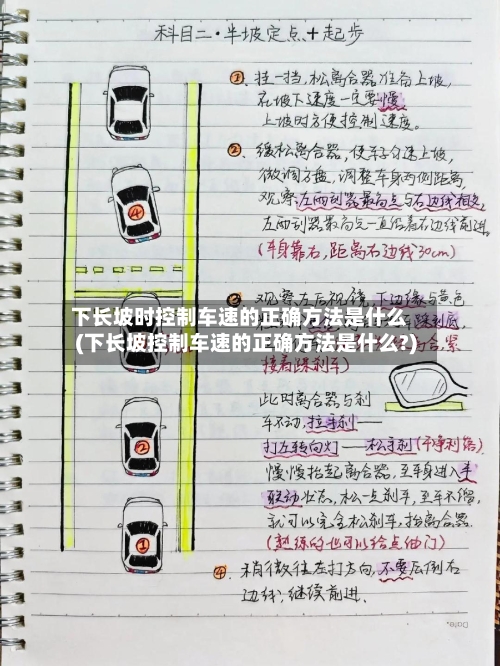 科目二·半坡定点+起步
①、挂一挡,松离合器准备上坡,
在坡下速度一定要慢,
上坡时方便控制速度。
②、缓松离合器,使车子匀速上坡,
微调方盘,调整车身两侧距离,
观察左雨刮器最高点与右边线相交,
左雨刮器最高点一直沿着右边线前进
(车身靠右,距离右边线30cm)
③、观察左后视镜,下边缘与黄色
下长坡时控制车速的正确方法是什么
(下长坡控制车速的正确方法是什么?)
接着踩刹车)
此时离合器与刹
车不动,拉手刹——
打左转向灯——松手刹
慢慢抬起离合器,至车身进入半
联动状态,松一点刹车,至车不溜,
就可以完全松刹车,抬离合器.
(熟练的也可以给点油门)
④、稍微往左打方向,不要压倒右
边线,继续前进、
④
②
①
Date.